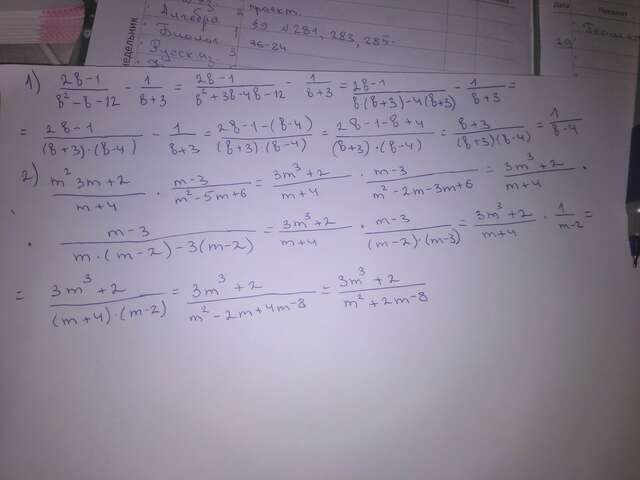 Алгебра проект.
Биолог 59 №281, 283, 285.
Русск яз 76-84
недельник
Дата
Предмет
1) (2в-1)/(в²-в-12) - 1/(в+3) = (2в-1)/(в²+3в-4в-12) - 1/(в+3) = (2в-1)/(в(в+3)-4(в+3)) - 1/(в+3) =
= (2в-1)/((в+3)·(в-4)) - 1/(в+3) = (2в-1-(в-4))/((в+3)·(в-4)) = (2в-1-в+4)/((в+3)·(в-4)) = (в+3)/((в+3)(в-4)) = 1/(в-4)
2) (m² 3m+2)/(m+4) · (m-3)/(m²-5m+6) = (3m³+2)/(m+4) · (m-3)/(m²-2m-3m+6) = (3m³+2)/(m+4) ·
· (m-3)/(m·(m-2)-3(m-2)) = (3m³+2)/(m+4) · (m-3)/((m-2)·(m-3)) = (3m³+2)/(m+4) · 1/(m-2) =
= (3m³+2)/((m+4)·(m-2)) = (3m³+2)/(m²-2m+4m-8) = (3m³+2)/(m²+2m-8)